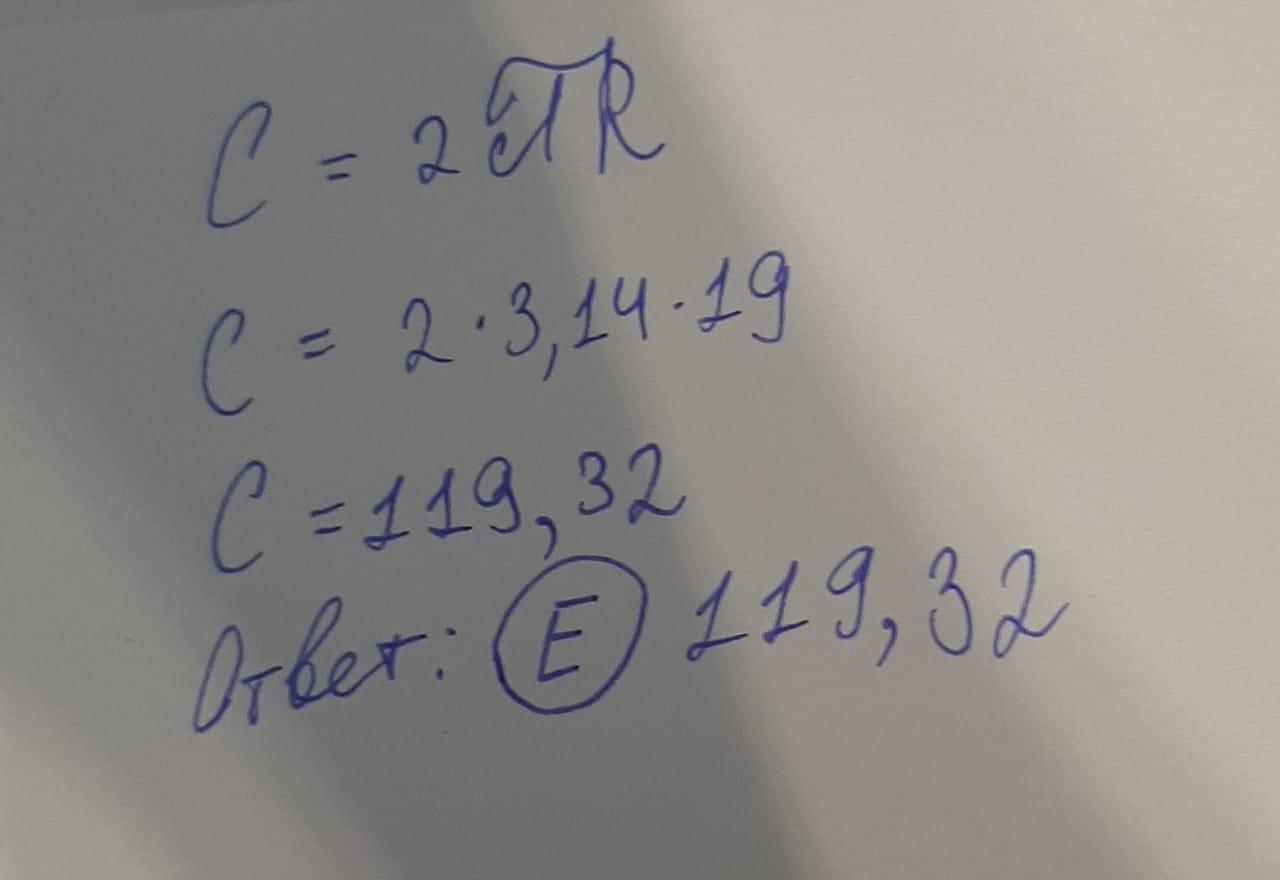 C = 2πR
C = 2·3,14·19
C = 119,32
Ответ: E 119,32